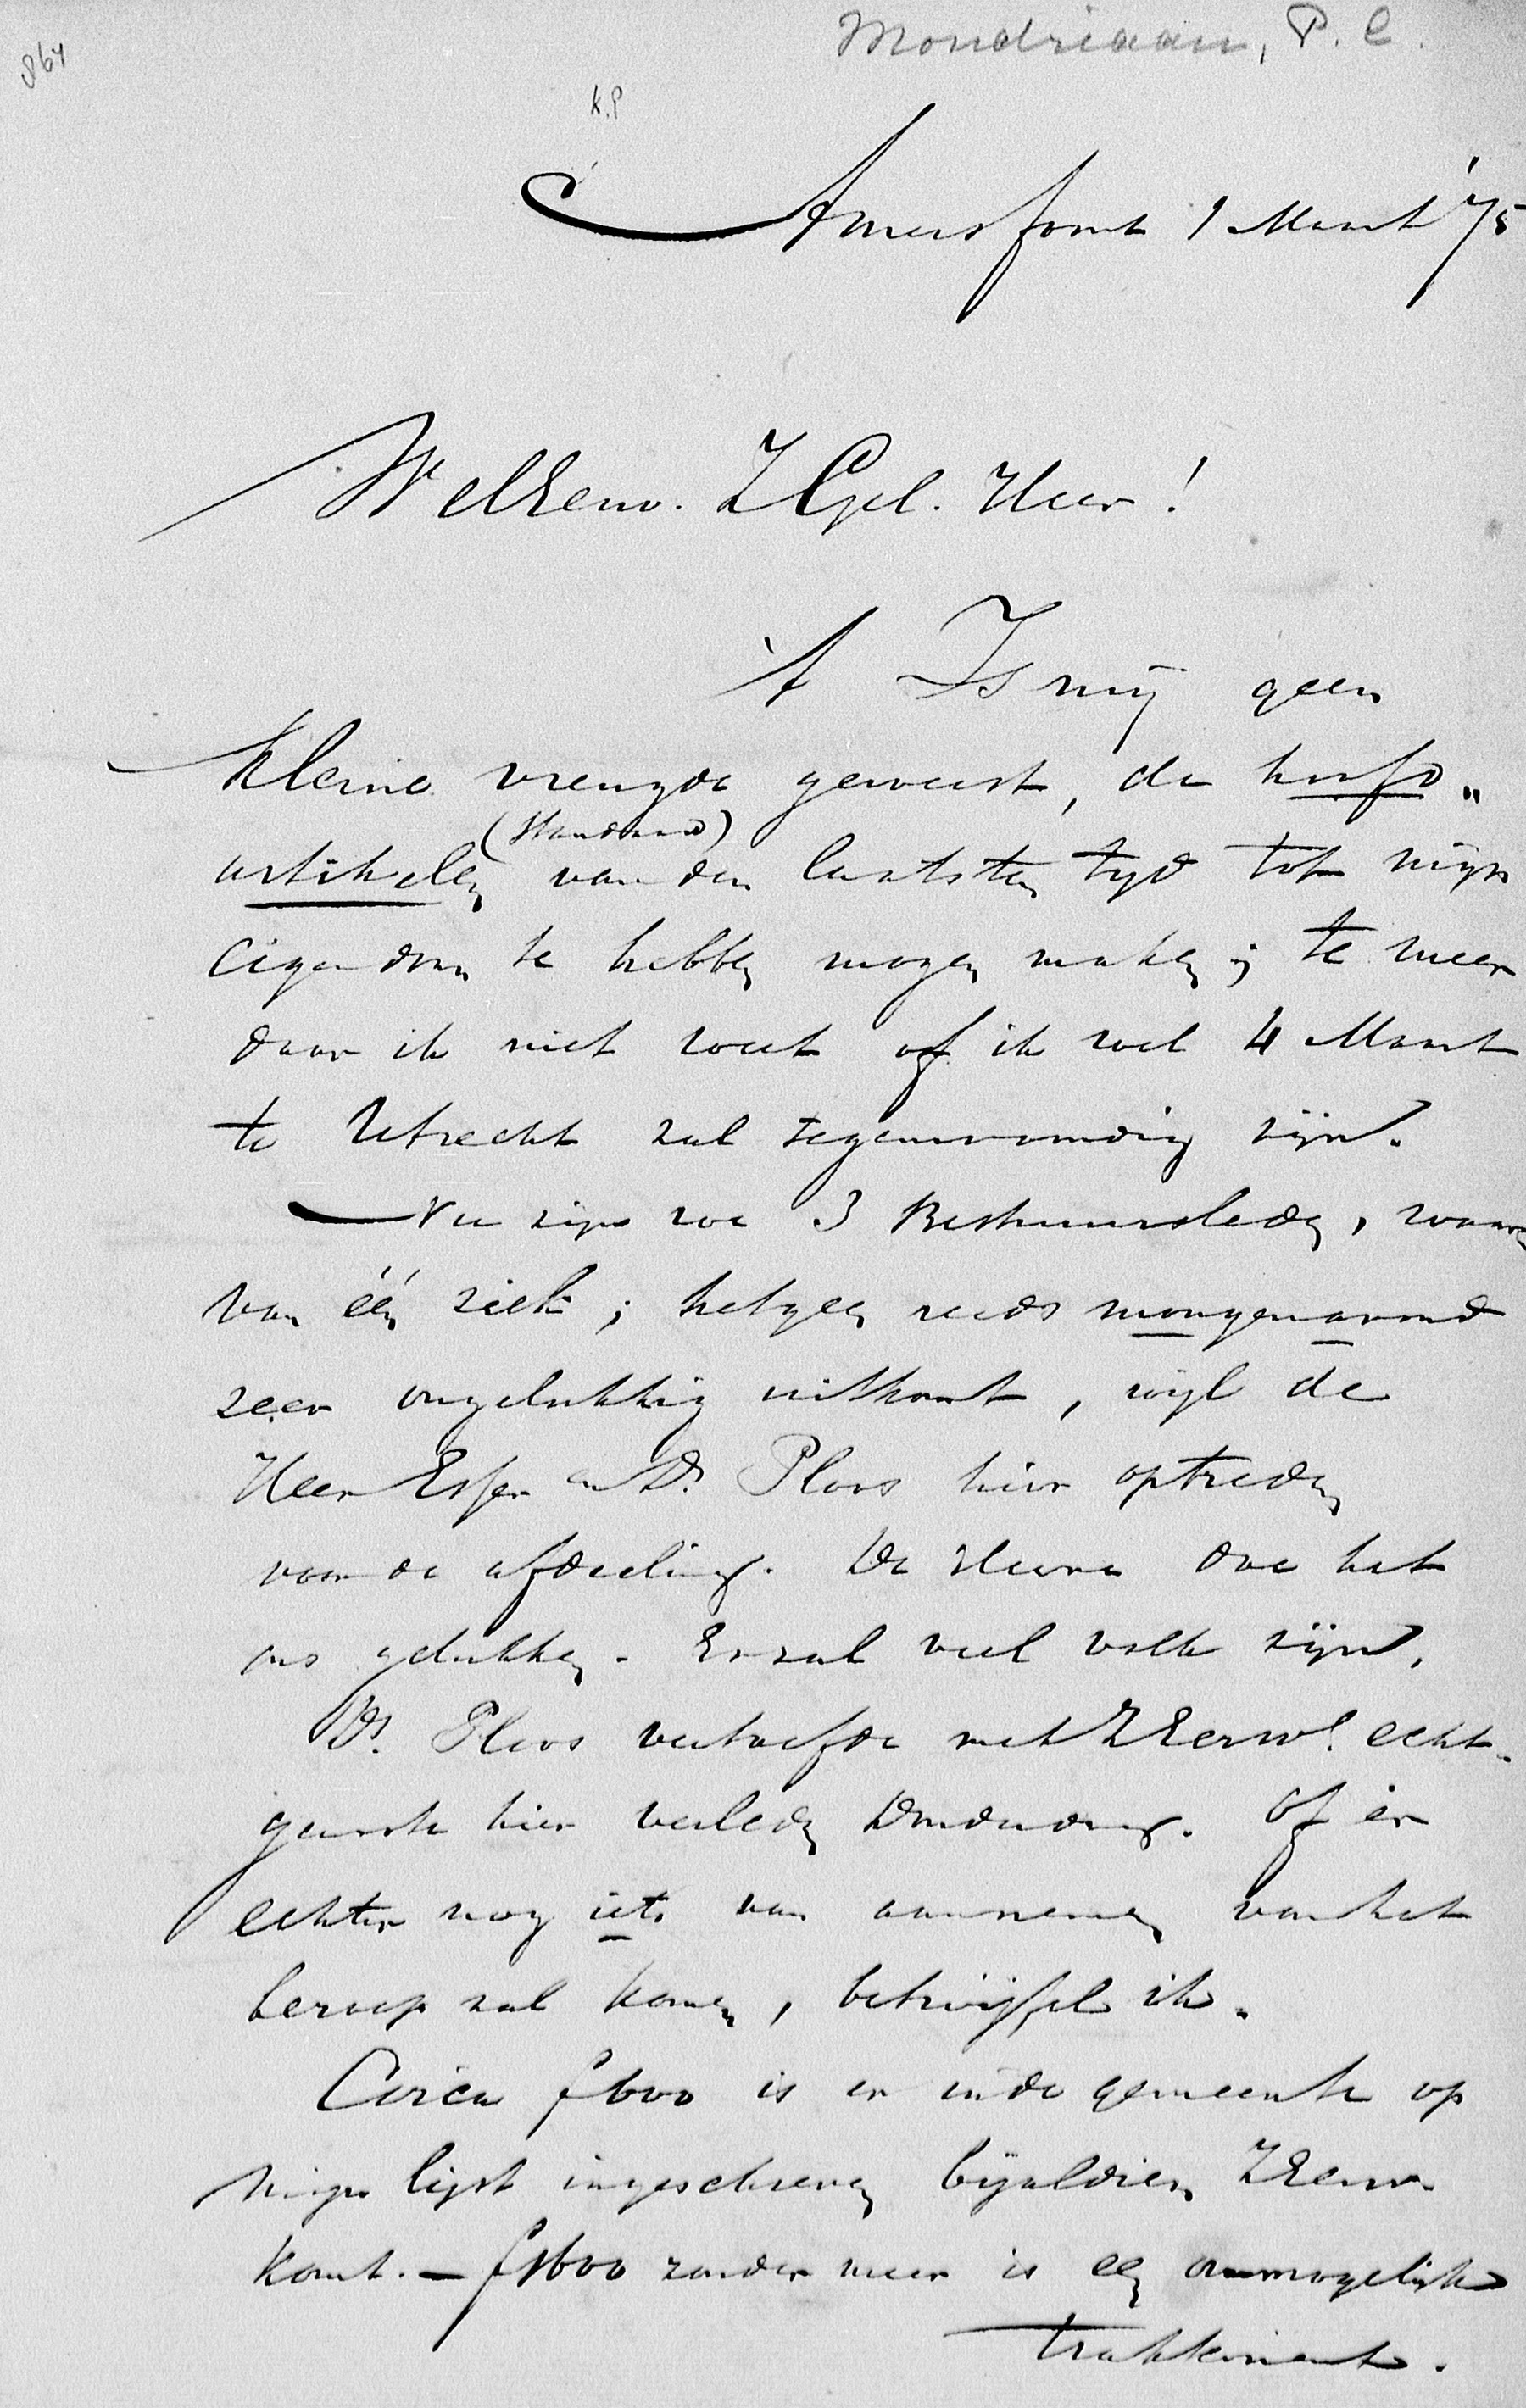 864
Mondriaan, P. C.
K.P
Amersfoort 1 Maart '75
WelEerw. ZGel. Heer!
't Is mij geen
kleine vreugde geweest, de hoofd„
(Standaard)
artikelen van den laatsten tijd tot mijn
eigendom te hebben mogen maken; te meer
daar ik niet weet of ik wel 4 Maart
te Utrecht zal tegenwoordig zijn.
Nu zijn we 3 Bestuursleden, waar
van één ziek; hetgeen reeds morgenavond
zeer ongelukkig uitkomt, wijl de
Heer Esser en Ds. Ploos hier optreden
voor de afdeeling. De Heere doe het
ons gelukken. Er zal veel volk zijn.
Ds. Ploos vertoefde met ZEerw. echt-
genoote hier verleden Donderdag. Of er
echter nog iets van aannemen van het
beroep zal komen, betwijfel ik.
Circa f600 is er in de gemeente op
mijn lijst ingeschreven bijaldien ZEerw.
komt. – f1600 zonder meer is een onmogelijk
traktement.